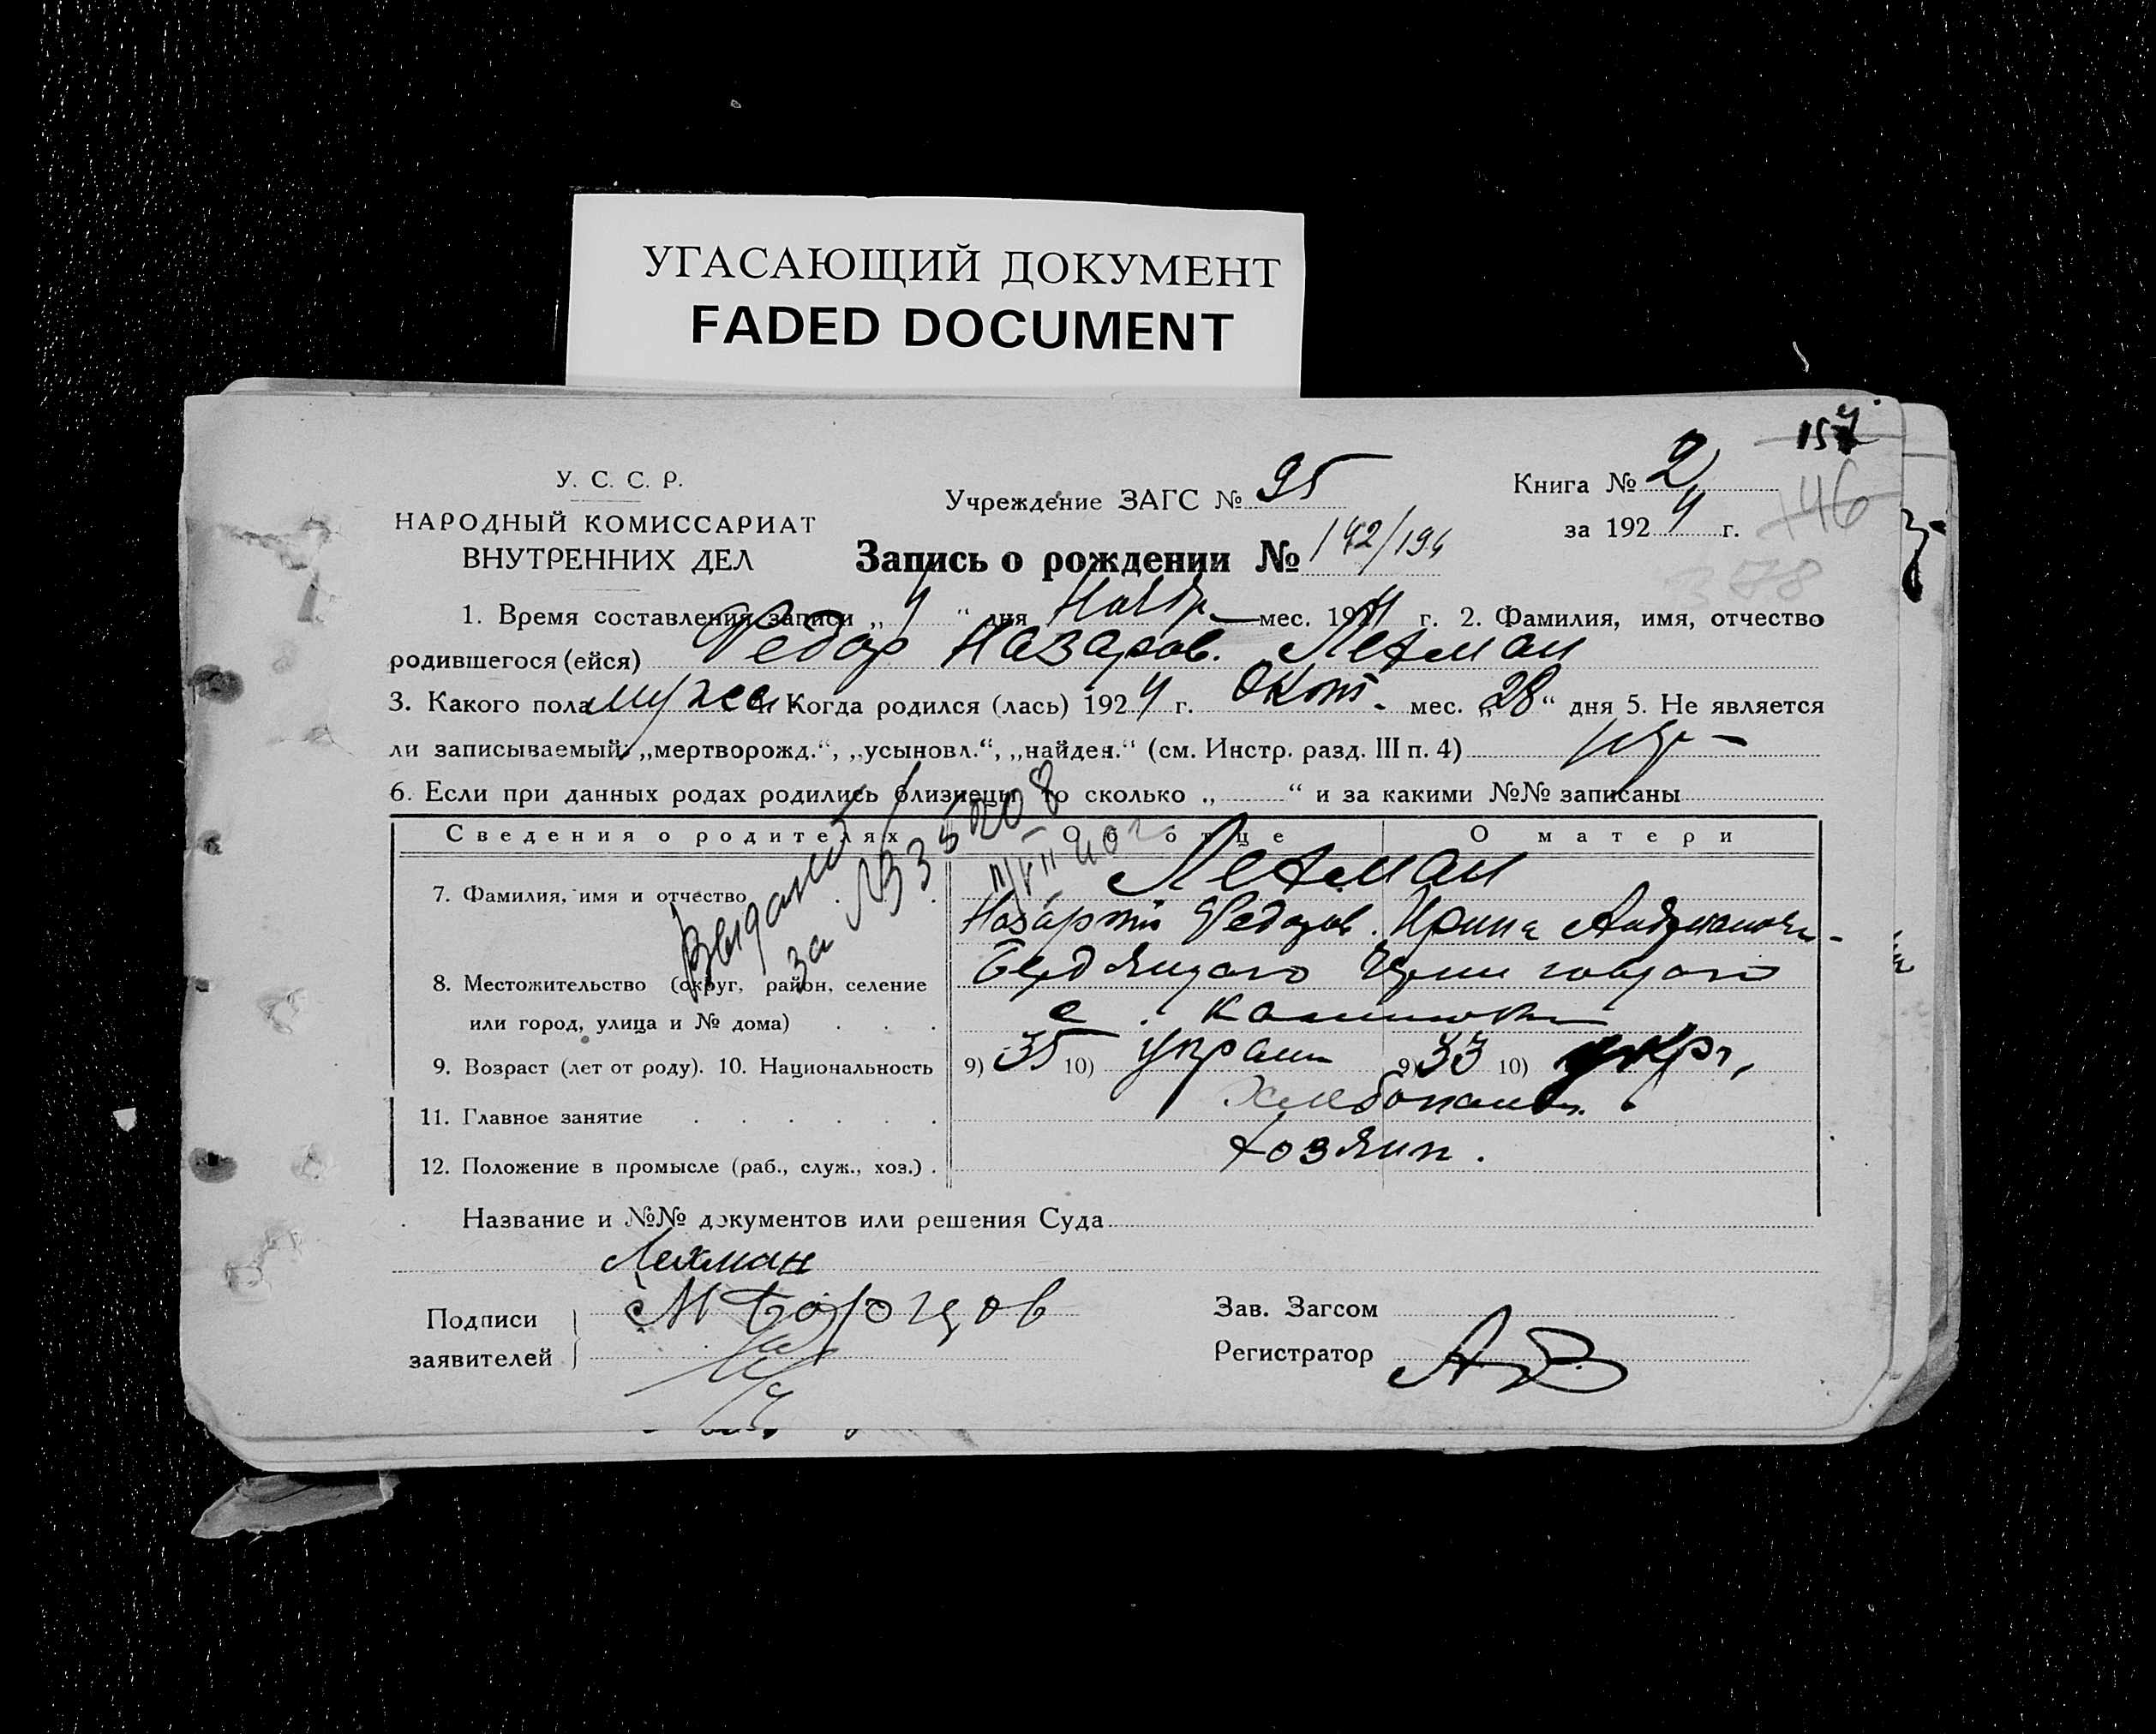 УГАСАЮЩИЙ ДОКУМЕНТ
FADED DOCUMENT
157
У. С. С. Р.
НАРОДНЫЙ КОМИССАРИАТ
ВНУТРЕННИХ ДЕЛ
Учреждение ЗАГС № 95
Книга № 2
146
за 1924 г.
378
Запись о рождении № 142/194
1. Время составления записи „4“ дня Ноябр. мес. 1924 г. 2. Фамилия, имя, отчество
родившегося (ейся) Федор Назаров. Лехман
3. Какого пола мужс Когда родился (лась) 1924 г. Окт. мес. „28“ дня 5. Не является
ли записываемый: „мертворожд.“, „усыновл.“, „найден.“ (см. Инстр. разд. III п. 4)
6. Если при данных родах родились близнецы то сколько „ “ и за какими №№ записаны
Сведения о родителях Об отце О матери
Выданий
за №
Лехман
7. Фамилия, имя и отчество
Ирина
8. Местожительство (округ, район, селение
или город, улица и № дома)
с.
9. Возраст (лет от роду). 10. Национальность 9) 35 10) украин 9) 33 10) укр.
11. Главное занятие Хлебопашец.
12. Положение в промысле (раб., служ., хоз.) Хозяин.
Название и №№ документов или решения Суда
Лехман
Подписи
заявителей
Зав. Загсом
Регистратор